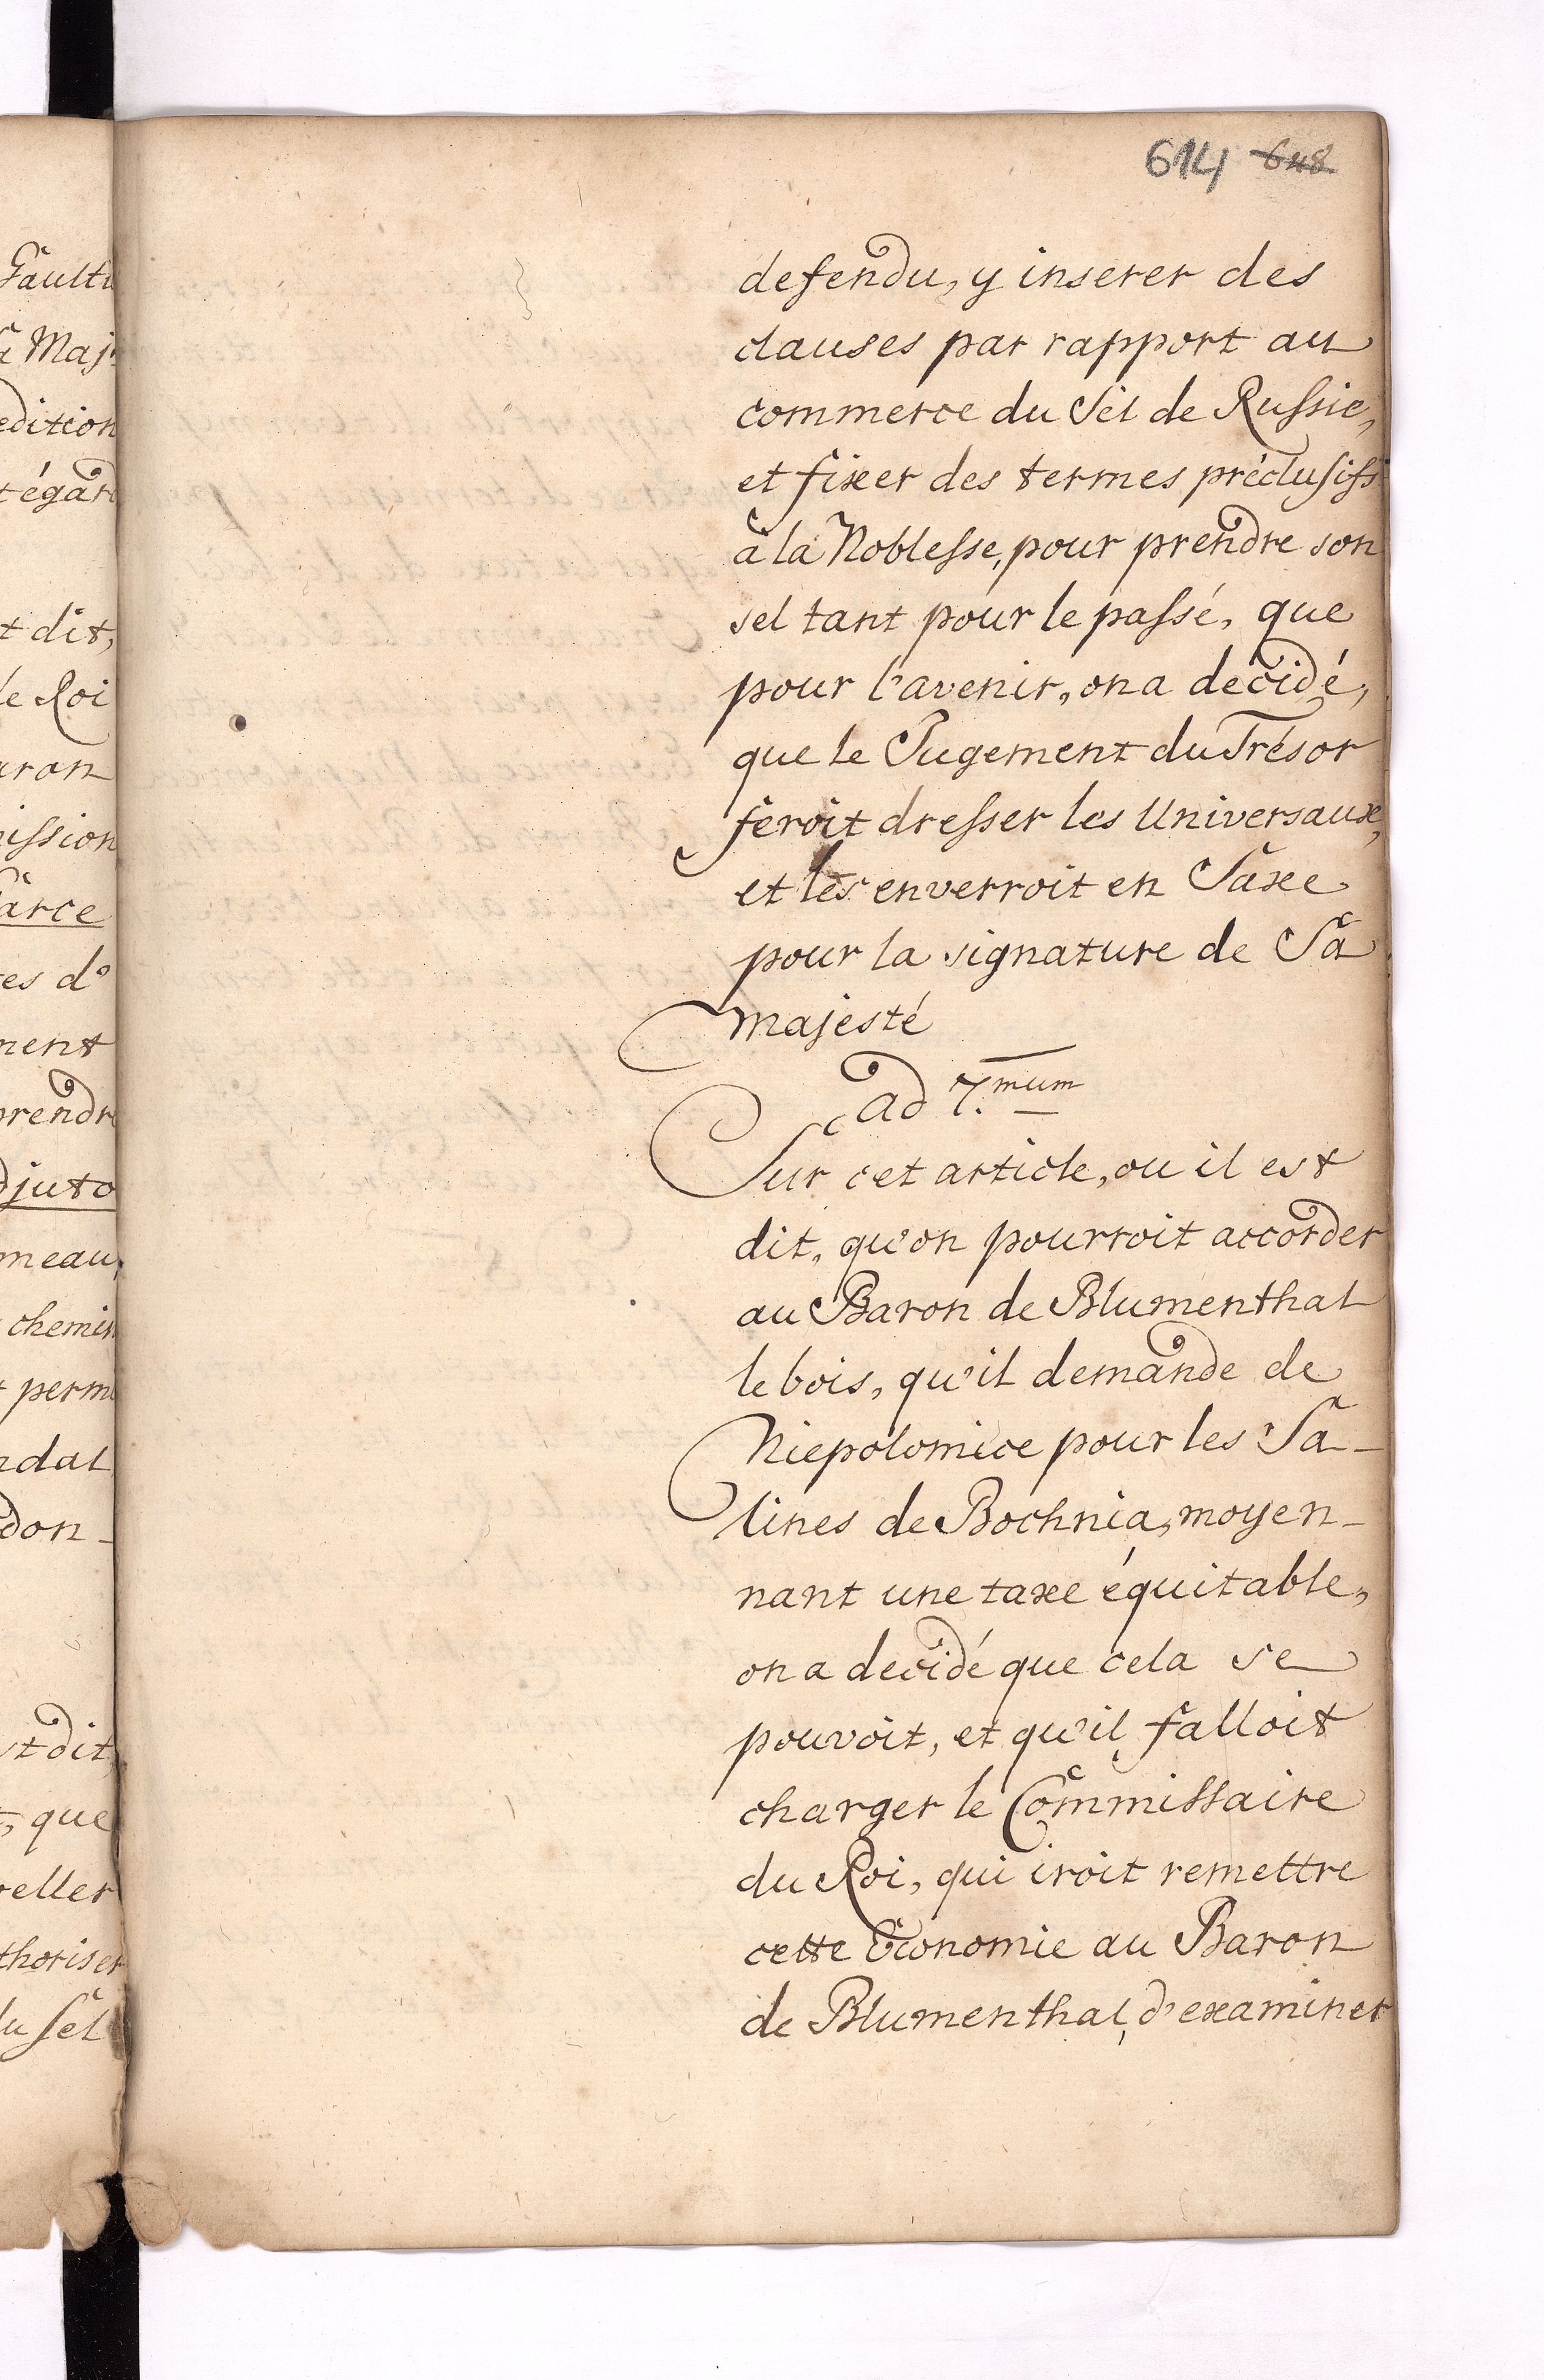 614 648
defendu, y inserer des
clauses par rapport au
commerce du Sel de Russie,
et fixer des termes préclusifs
à la Noblesse, pour prendre son
sel tant pour le passé, que
pour l'avenir, on a decidé,
que le Jugement du Trésor
feroit dresser les Universaux,
et les enverroit en Saxe
pour la signature de Sa
Majesté
ad 7.mum
Sur cet article, ou il est
dit, qu'on pourroit accorder
au Baron de Blumenthal
le bois, qu'il demande de
Niepolomice pour les Sa-
lines de Bochnia, moyen-
nant une taxe équitable,
on a decidé que cela se
pouvoit, et qu'il falloit
charger le Commissaire
du Roi, qui iroit remettre
cette Economie au Baron
de Blumenthal, d'examiner